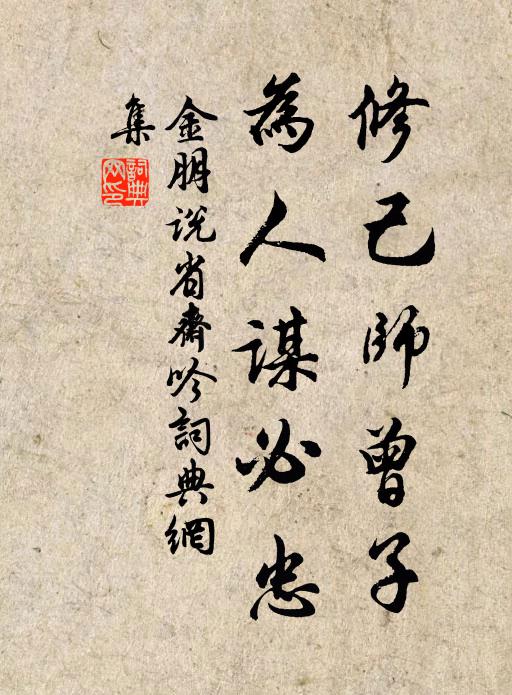 修己師曾子
為人謀必忠
金朋说省齋吟詞典網
集
詞典網印